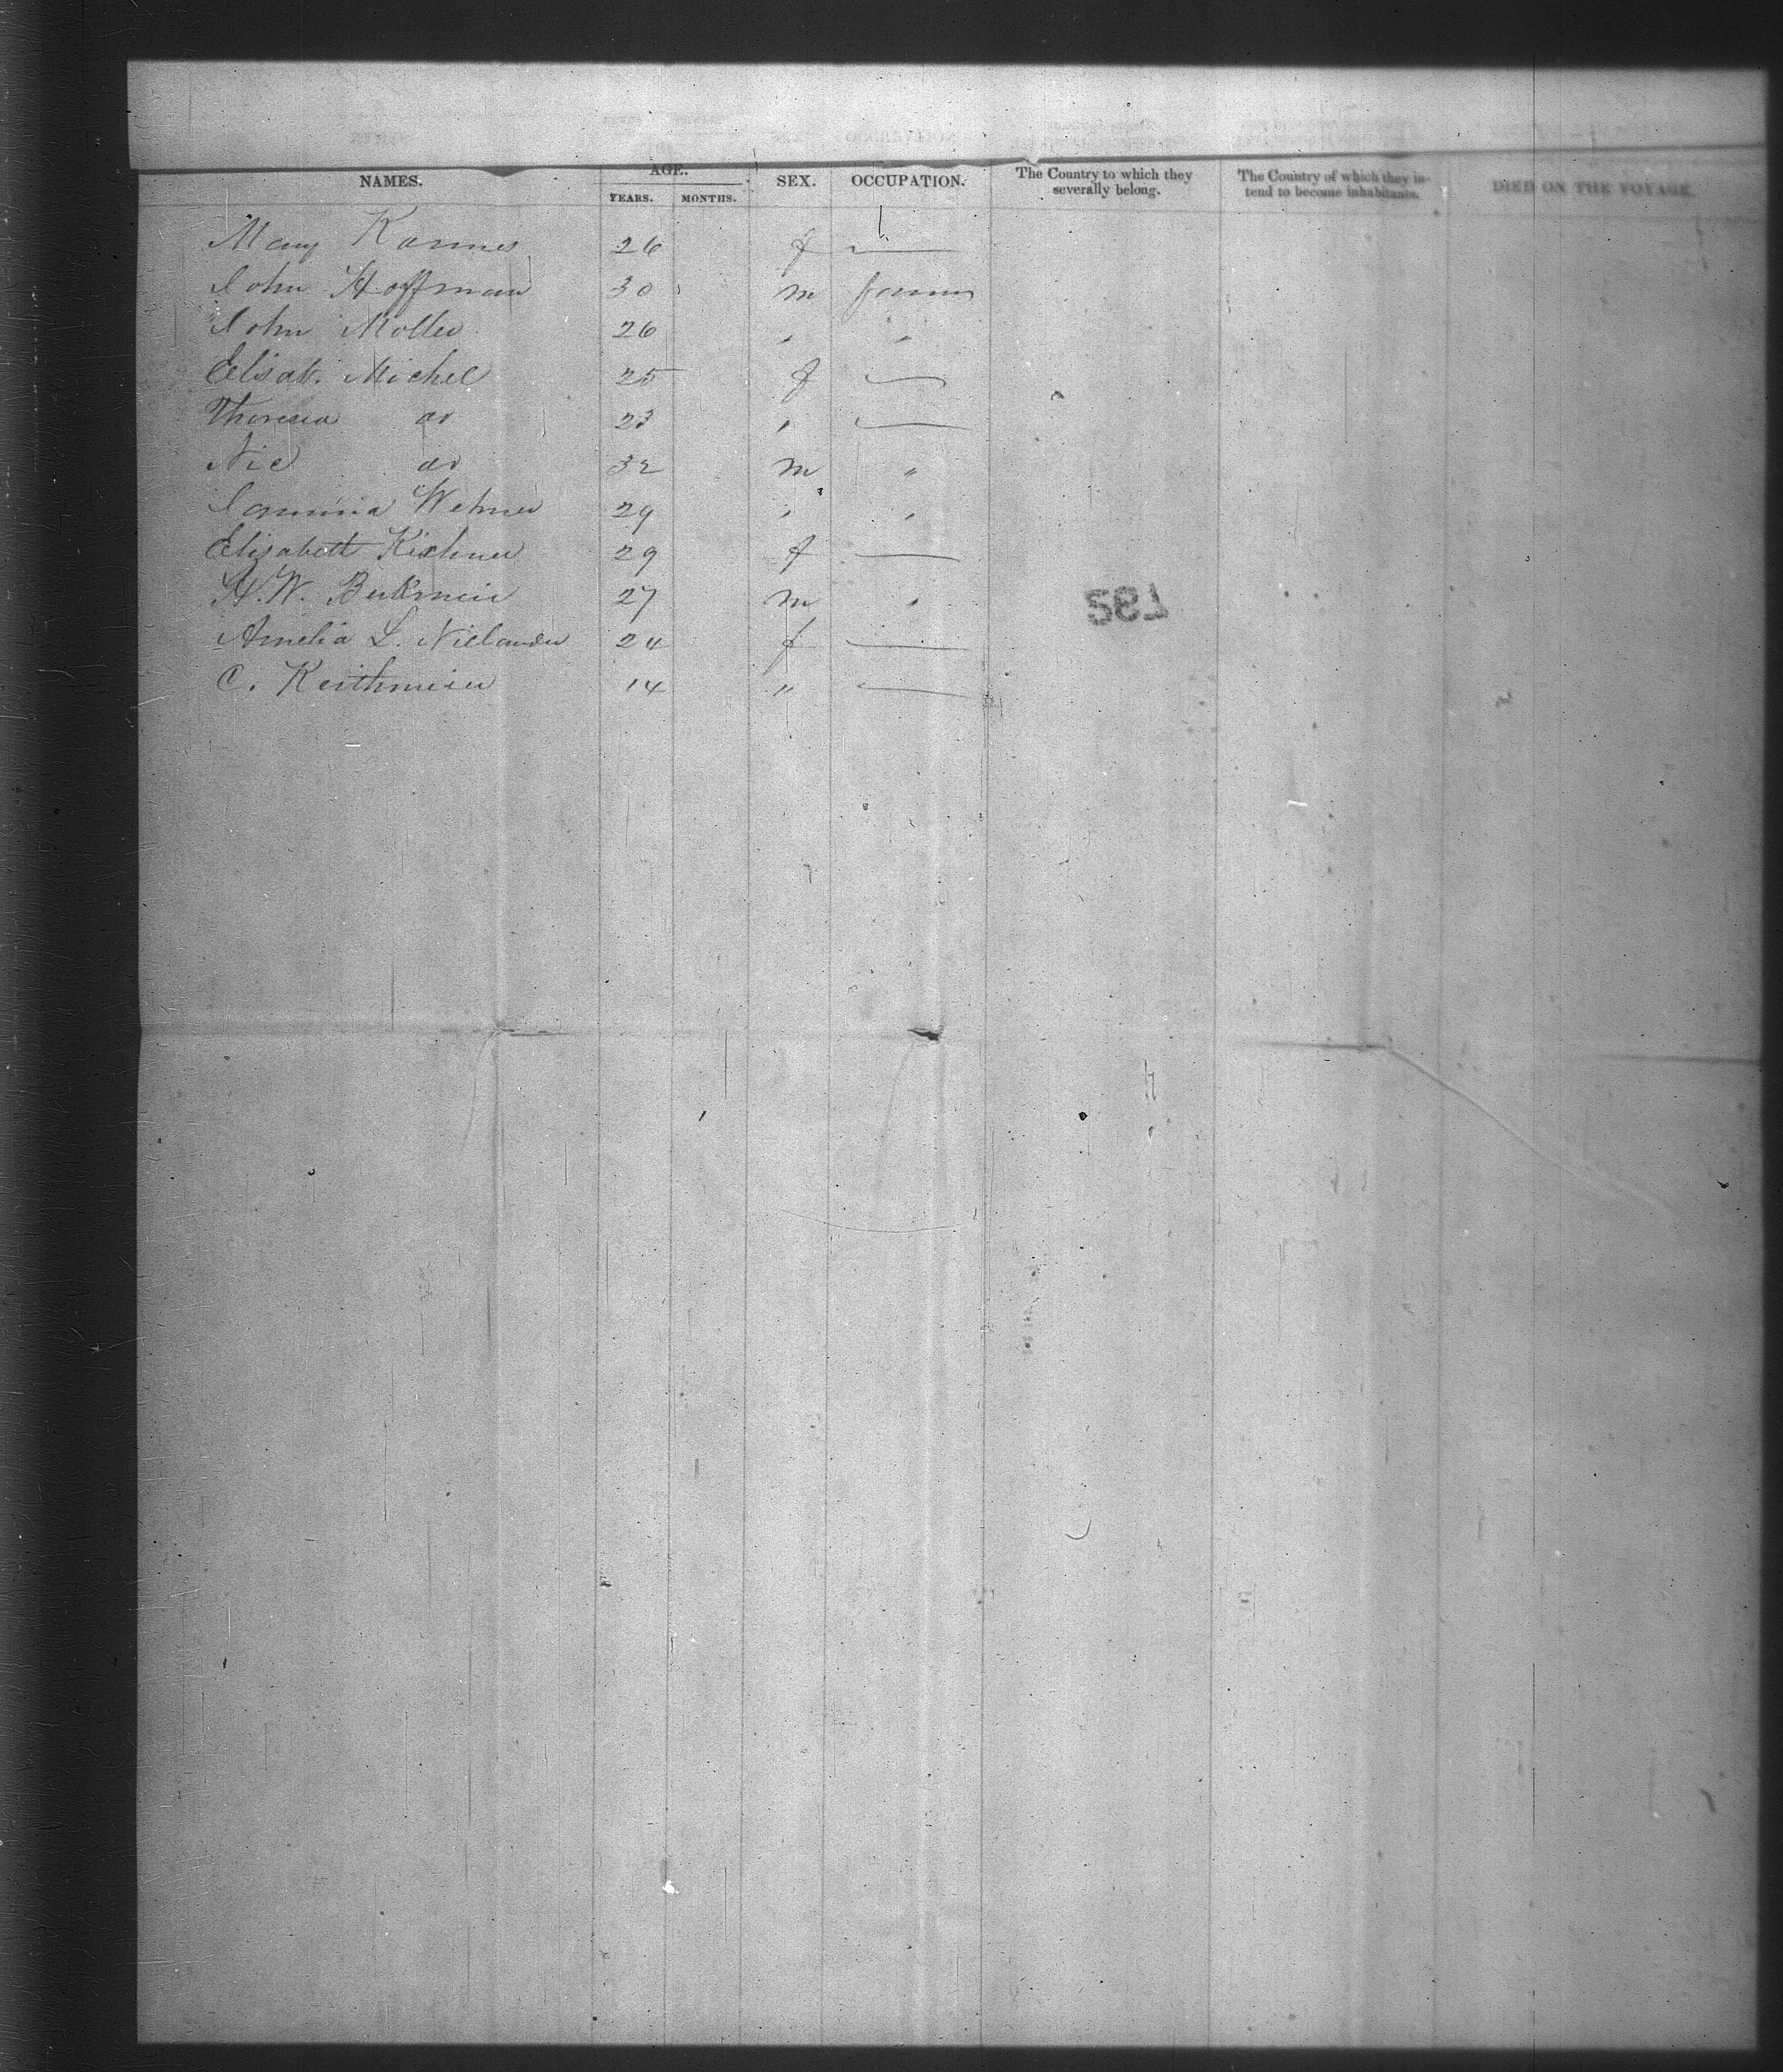 NAMES. AGE. YEARS. MONTHS. SEX. OCCUPATION. The Country to which they severally belong. The Country of which they intend to become inhabitants. DIED ON THE VOYAGE.
Mary Karmes 26 f —
John Hoffman 30 m farmer
John Moller 26 " "
Elisab. Michel 25 f —
Theresia do 23 " —
Nic do 32 m "
Wehner 29 " "
Elisabett Kichner 29 f —
H.W. 27 m "
Amelia L. Nielander 24 f —
C. Keithmeier 14 " —
587